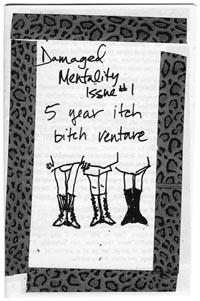 Damaged
Mentality
Issue #1
5 year itch
bitch venture